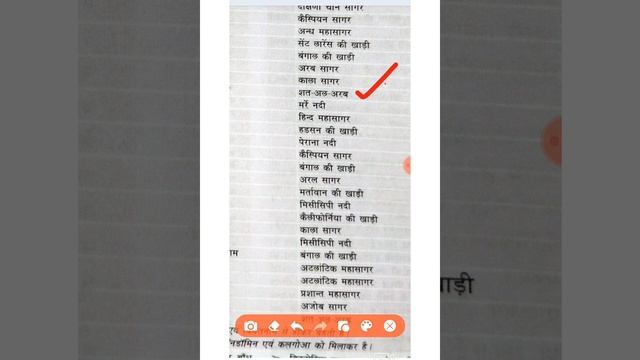 दक्षिणी चीन सागर
कैस्पियन सागर
अन्ध महासागर
सेंट लारेंस की खाड़ी
बंगाल की खाड़ी
अरब सागर
काला सागर
शत-अल-अरब
मरे नदी
हिन्द महासागर
हडसन की खाड़ी
पेराना नदी
कैस्पियन सागर
बंगाल की खाड़ी
अरल सागर
मर्तावान की खाड़ी
मिसीसिपी नदी
कैलीफोर्निया की खाड़ी
काला सागर
मिसीसिपी नदी
बंगाल की खाड़ी
अटलांटिक महासागर
अटलांटिक महासागर
प्रशान्त महासागर
अजोब सागर
एवं कलगोआ को मिलाकर है।